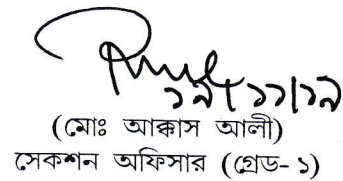 ১৯/১১/১৯
(মোঃ আক্কাস আলী)
সেকশন অফিসার (গ্রেড- ১)